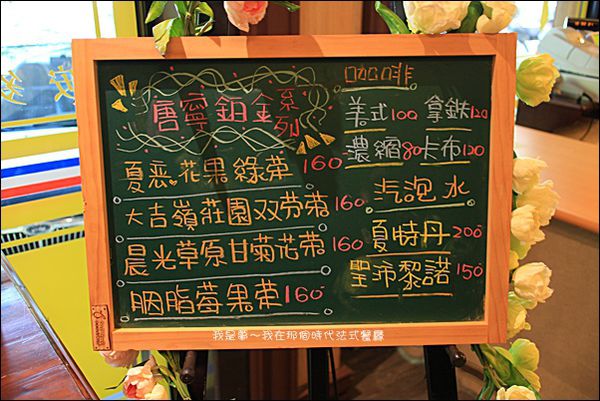 唐寧鉑金系列
夏戀♥花果綠茶 160
大吉嶺莊園双芬茶 160
晨光草原甘菊花茶 160
胭脂莓果茶 160
咖啡
美式 100 拿鉄 120
濃縮 80 卡布 120
汽泡水
夏特丹 200
聖沛黎諾 150
我是藥～我在那個時代法式餐廳